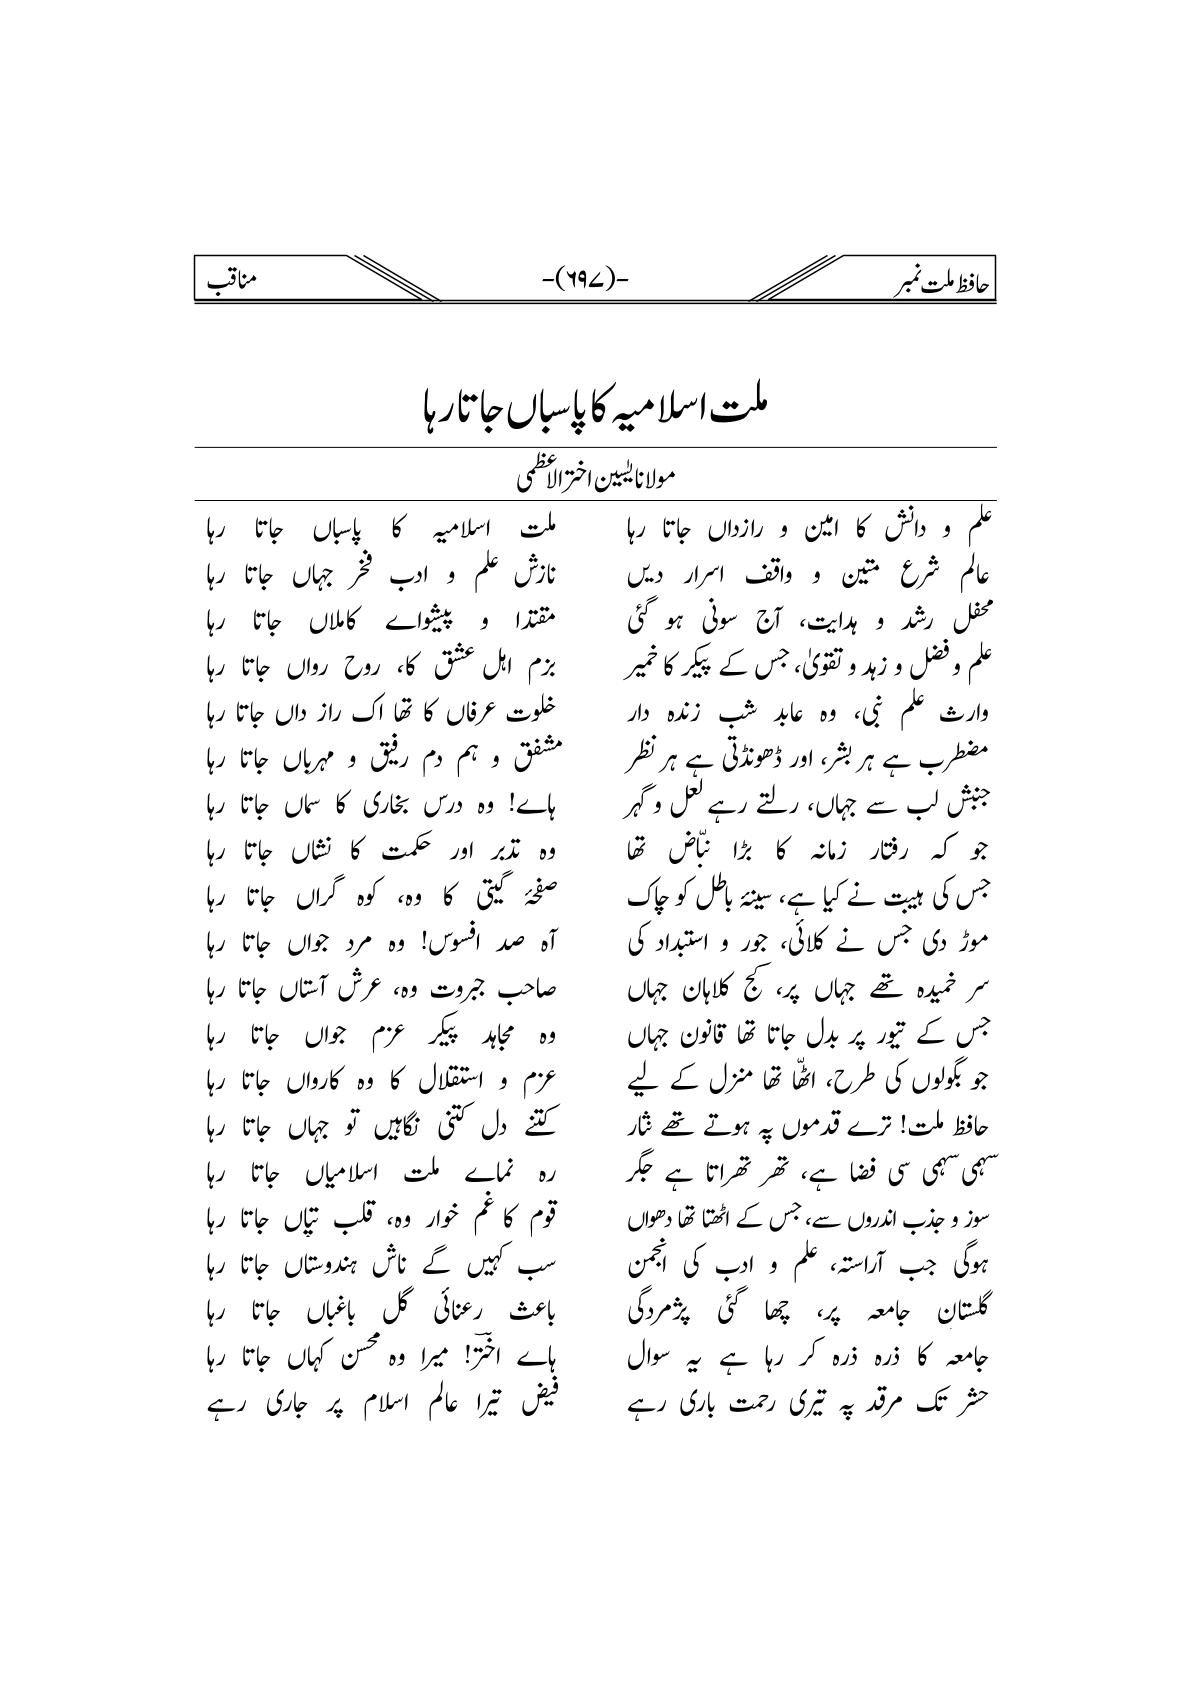 حافظ ملت نمبر -(۶۹۷)- مناقب
ملت اسلامیہ کا پاسباں جاتا رہا
مولانا یٰسین اختر الاعظمی
علم و دانش کا امین و رازداں جاتا رہا ملت اسلامیہ کا پاسباں جاتا رہا
عالم شرع متین و واقف اسرار دیں نازش علم و ادب فخر جہاں جاتا رہا
محفل رشد و ہدایت، آج سونی ہو گئی مقتدا و پیشواے کاملاں جاتا رہا
علم و فضل و زہد و تقویٰ، جس کے پیکر کا خمیر بزم اہل عشق کا، روح رواں جاتا رہا
وارث علم نبی، وہ عابد شب زندہ دار خلوت عرفاں کا تھا اک راز داں جاتا رہا
مضطرب ہے ہر بشر، اور ڈھونڈتی ہے ہر نظر مشفق و ہم دم رفیق و مہرباں جاتا رہا
جنبش لب سے جہاں، رلتے رہے لعل و گہر ہاے! وہ درس بخاری کا سماں جاتا رہا
جو کہ رفتار زمانہ کا بڑا نبّاض تھا وہ تدبر اور حکمت کا نشاں جاتا رہا
جس کی ہیبت نے کیا ہے، سینۂ باطل کو چاک صفحۂ گیتی کا وہ، کوہ گراں جاتا رہا
موڑ دی جس نے کلائی، جور و استبداد کی آہ صد افسوس! وہ مرد جواں جاتا رہا
سر خمیدہ تھے جہاں پر، کج کلاہان جہاں صاحب جبروت وہ، عرش آستاں جاتا رہا
جس کے تیور پر بدل جاتا تھا قانون جہاں وہ مجاہد پیکر عزم جواں جاتا رہا
جو بگولوں کی طرح، اٹھّا تھا منزل کے لیے عزم و استقلال کا وہ کارواں جاتا رہا
حافظ ملت! ترے قدموں پہ ہوتے تھے نثار کتنے دل کتنی نگاہیں تو جہاں جاتا رہا
سہمی سہمی سی فضا ہے، تھر تھراتا ہے جگر رہ نماے ملت اسلامیاں جاتا رہا
سوز و جذب اندروں سے، جس کے اٹھتا تھا دھواں قوم کا غم خوار وہ، قلب تپاں جاتا رہا
ہوگی جب آراستہ، علم و ادب کی انجمن سب کہیں گے ناش ہندوستاں جاتا رہا
گلستان جامعہ پر، چھا گئی پژمردگی باعث رعنائی گل باغباں جاتا رہا
جامعہ کا ذرہ ذرہ کر رہا ہے یہ سوال ہاے اختر! میرا وہ محسن کہاں جاتا رہا
حشر تک مرقد پہ تیری رحمت باری رہے فیض تیرا عالم اسلام پر جاری رہے